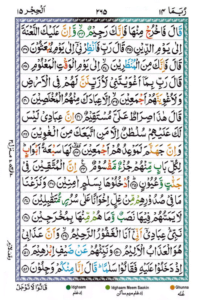 رُبَمَا ١٤ ٢٩٥ اَلْحِجْر ١٥
قَالَ فَاخْرُجْ مِنْهَا فَاِنَّكَ رَجِيْمٌ وَّاِنَّ عَلَيْكَ اللَّعْنَةَ
اِلٰى يَوْمِ الدِّيْنِ قَالَ رَبِّ فَاَنْظِرْنِيْ اِلٰى يَوْمِ يُبْعَثُوْنَ
قَالَ فَاِنَّكَ مِنَ الْمُنْظَرِيْنَ اِلٰى يَوْمِ الْوَقْتِ الْمَعْلُوْمِ
قَالَ رَبِّ بِمَا اَغْوَيْتَنِيْ لَاُزَيِّنَنَّ لَهُمْ فِي الْاَرْضِ
وَلَاُغْوِيَنَّهُمْ اَجْمَعِيْنَ اِلَّا عِبَادَكَ مِنْهُمُ الْمُخْلَصِيْنَ
قَالَ هٰذَا صِرَاطٌ عَلَيَّ مُسْتَقِيْمٌ اِنَّ عِبَادِيْ لَيْسَ
لَكَ عَلَيْهِمْ سُلْطٰنٌ اِلَّا مَنِ اتَّبَعَكَ مِنَ الْغٰوِيْنَ
وَاِنَّ جَهَنَّمَ لَمَوْعِدُهُمْ اَجْمَعِيْنَ لَهَا سَبْعَةُ اَبْوَابٍ
لِكُلِّ بَابٍ مِّنْهُمْ جُزْءٌ مَّقْسُوْمٌ اِنَّ الْمُتَّقِيْنَ فِيْ
جَنّٰتٍ وَّعُيُوْنٍ اُدْخُلُوْهَا بِسَلٰمٍ اٰمِنِيْنَ وَنَزَعْنَا
مَا فِيْ صُدُوْرِهِمْ مِّنْ غِلٍّ اِخْوَانًا عَلٰى سُرُرٍ مُّتَقٰبِلِيْنَ
لَا يَمَسُّهُمْ فِيْهَا نَصَبٌ وَّمَا هُمْ مِّنْهَا بِمُخْرَجِيْنَ
نَبِّئْ عِبَادِيْ اَنِّيْ اَنَا الْغَفُوْرُ الرَّحِيْمُ وَاَنَّ عَذَابِيْ
هُوَ الْعَذَابُ الْاَلِيْمُ وَنَبِّئْهُمْ عَنْ ضَيْفِ اِبْرٰهِيْمَ
اِذْ دَخَلُوْا عَلَيْهِ فَقَالُوْا سَلٰمًا قَالَ اِنَّا مِنْكُمْ وَجِلُوْنَ